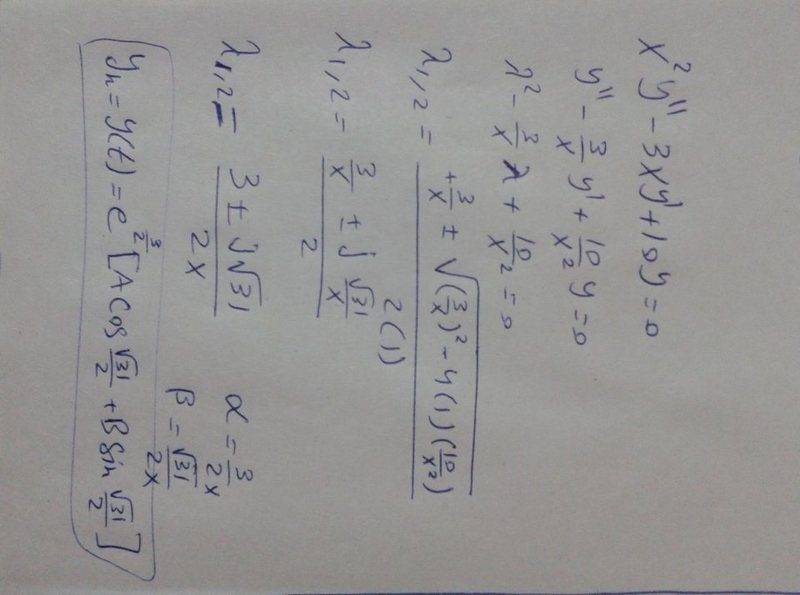 x²y" - 3xy' + 10y = 0
y" - 3/x y' + 10/x² y = 0
λ² - 3/x λ + 10/x² = 0
λ1,2 = (+3/x ± √((3/x)² - 4(1)(10/x²))) / 2(1)
λ1,2 = (3/x ± j √31/x) / 2
λ1,2 = (3 ± j√31) / 2x
α = 3/2x
β = √31/2x
yh = y(t) = e^(3/2) [A cos √31/2 + B sin √31/2]